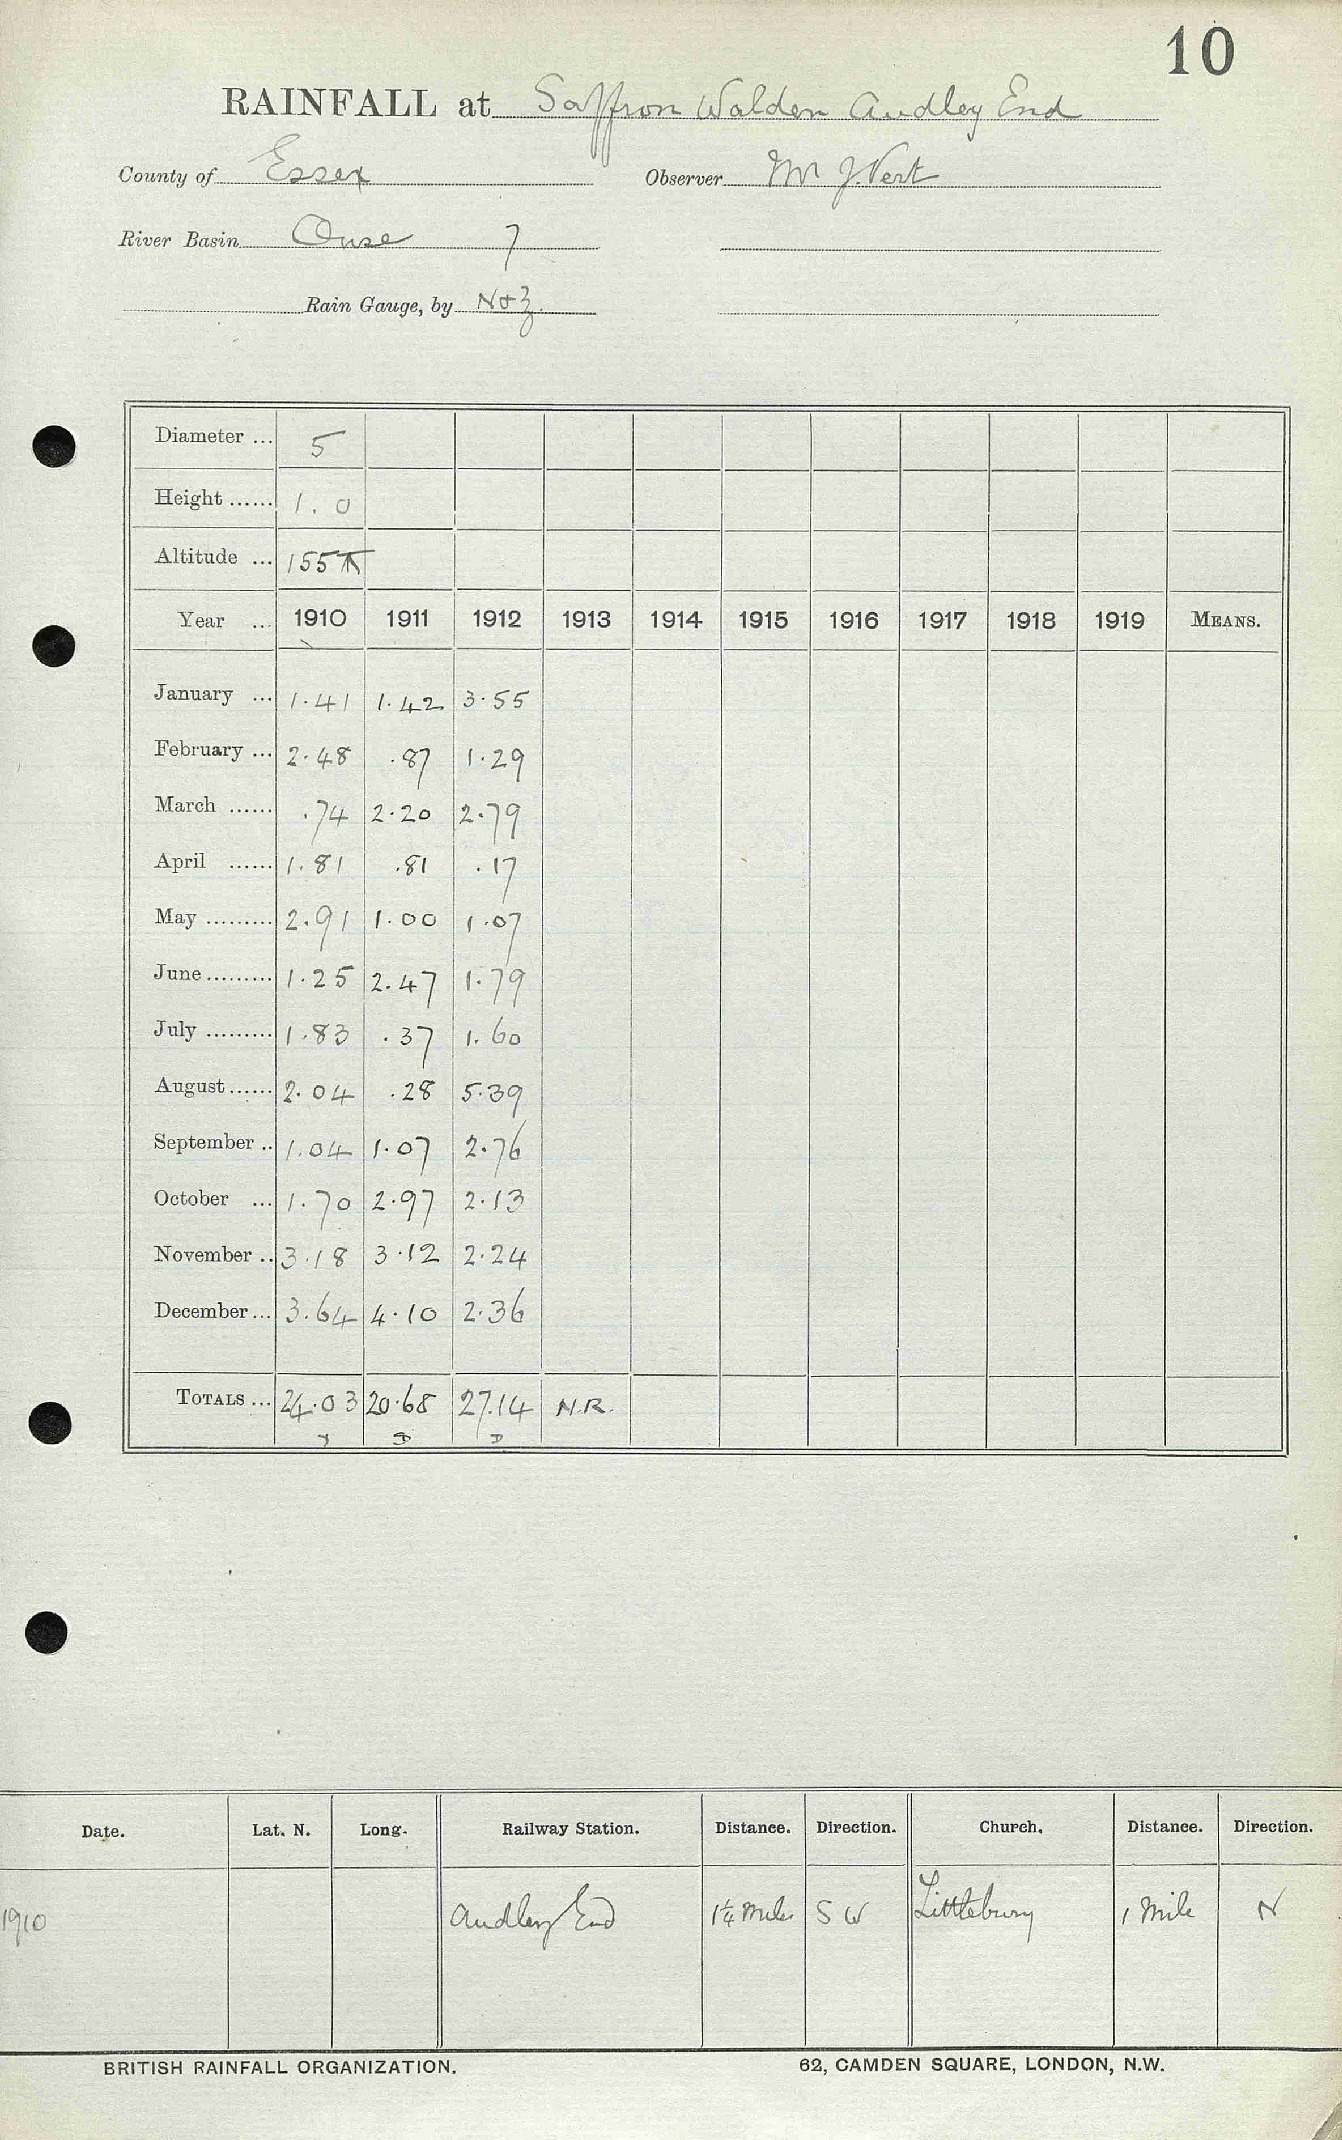 10
RAINFALL at Saffron Walden Audley End
County of Essex Observer Mr J. Vert
River Basin Ouse 7
Rain Gauge, by N & Z
Diameter ... 5
Height ...... 1.0
Altitude ... 155
Year ... 1910 1911 1912 1913 1914 1915 1916 1917 1918 1919 MEANS.
January ... 1.41 1.42 3.55
February ... 2.48 .87 1.29
March ...... .74 2.20 2.79
April ...... 1.81 .81 .17
May ......... 2.91 1.00 1.07
June ......... 1.25 2.47 1.79
July ......... 1.83 .37 1.60
August ...... 2.04 .28 5.39
September .. 1.04 1.07 2.76
October ... 1.70 2.97 2.13
November .. 3.18 3.12 2.24
December ... 3.64 4.10 2.36
TOTALS ... 24.03 20.68 27.14 N.R.
Date. Lat. N. Long. Railway Station. Distance. Direction. Church. Distance. Direction.
1910 Audley End 1¼ Miles S W Littlebury 1 Mile N
BRITISH RAINFALL ORGANIZATION. 62, CAMDEN SQUARE, LONDON, N.W.